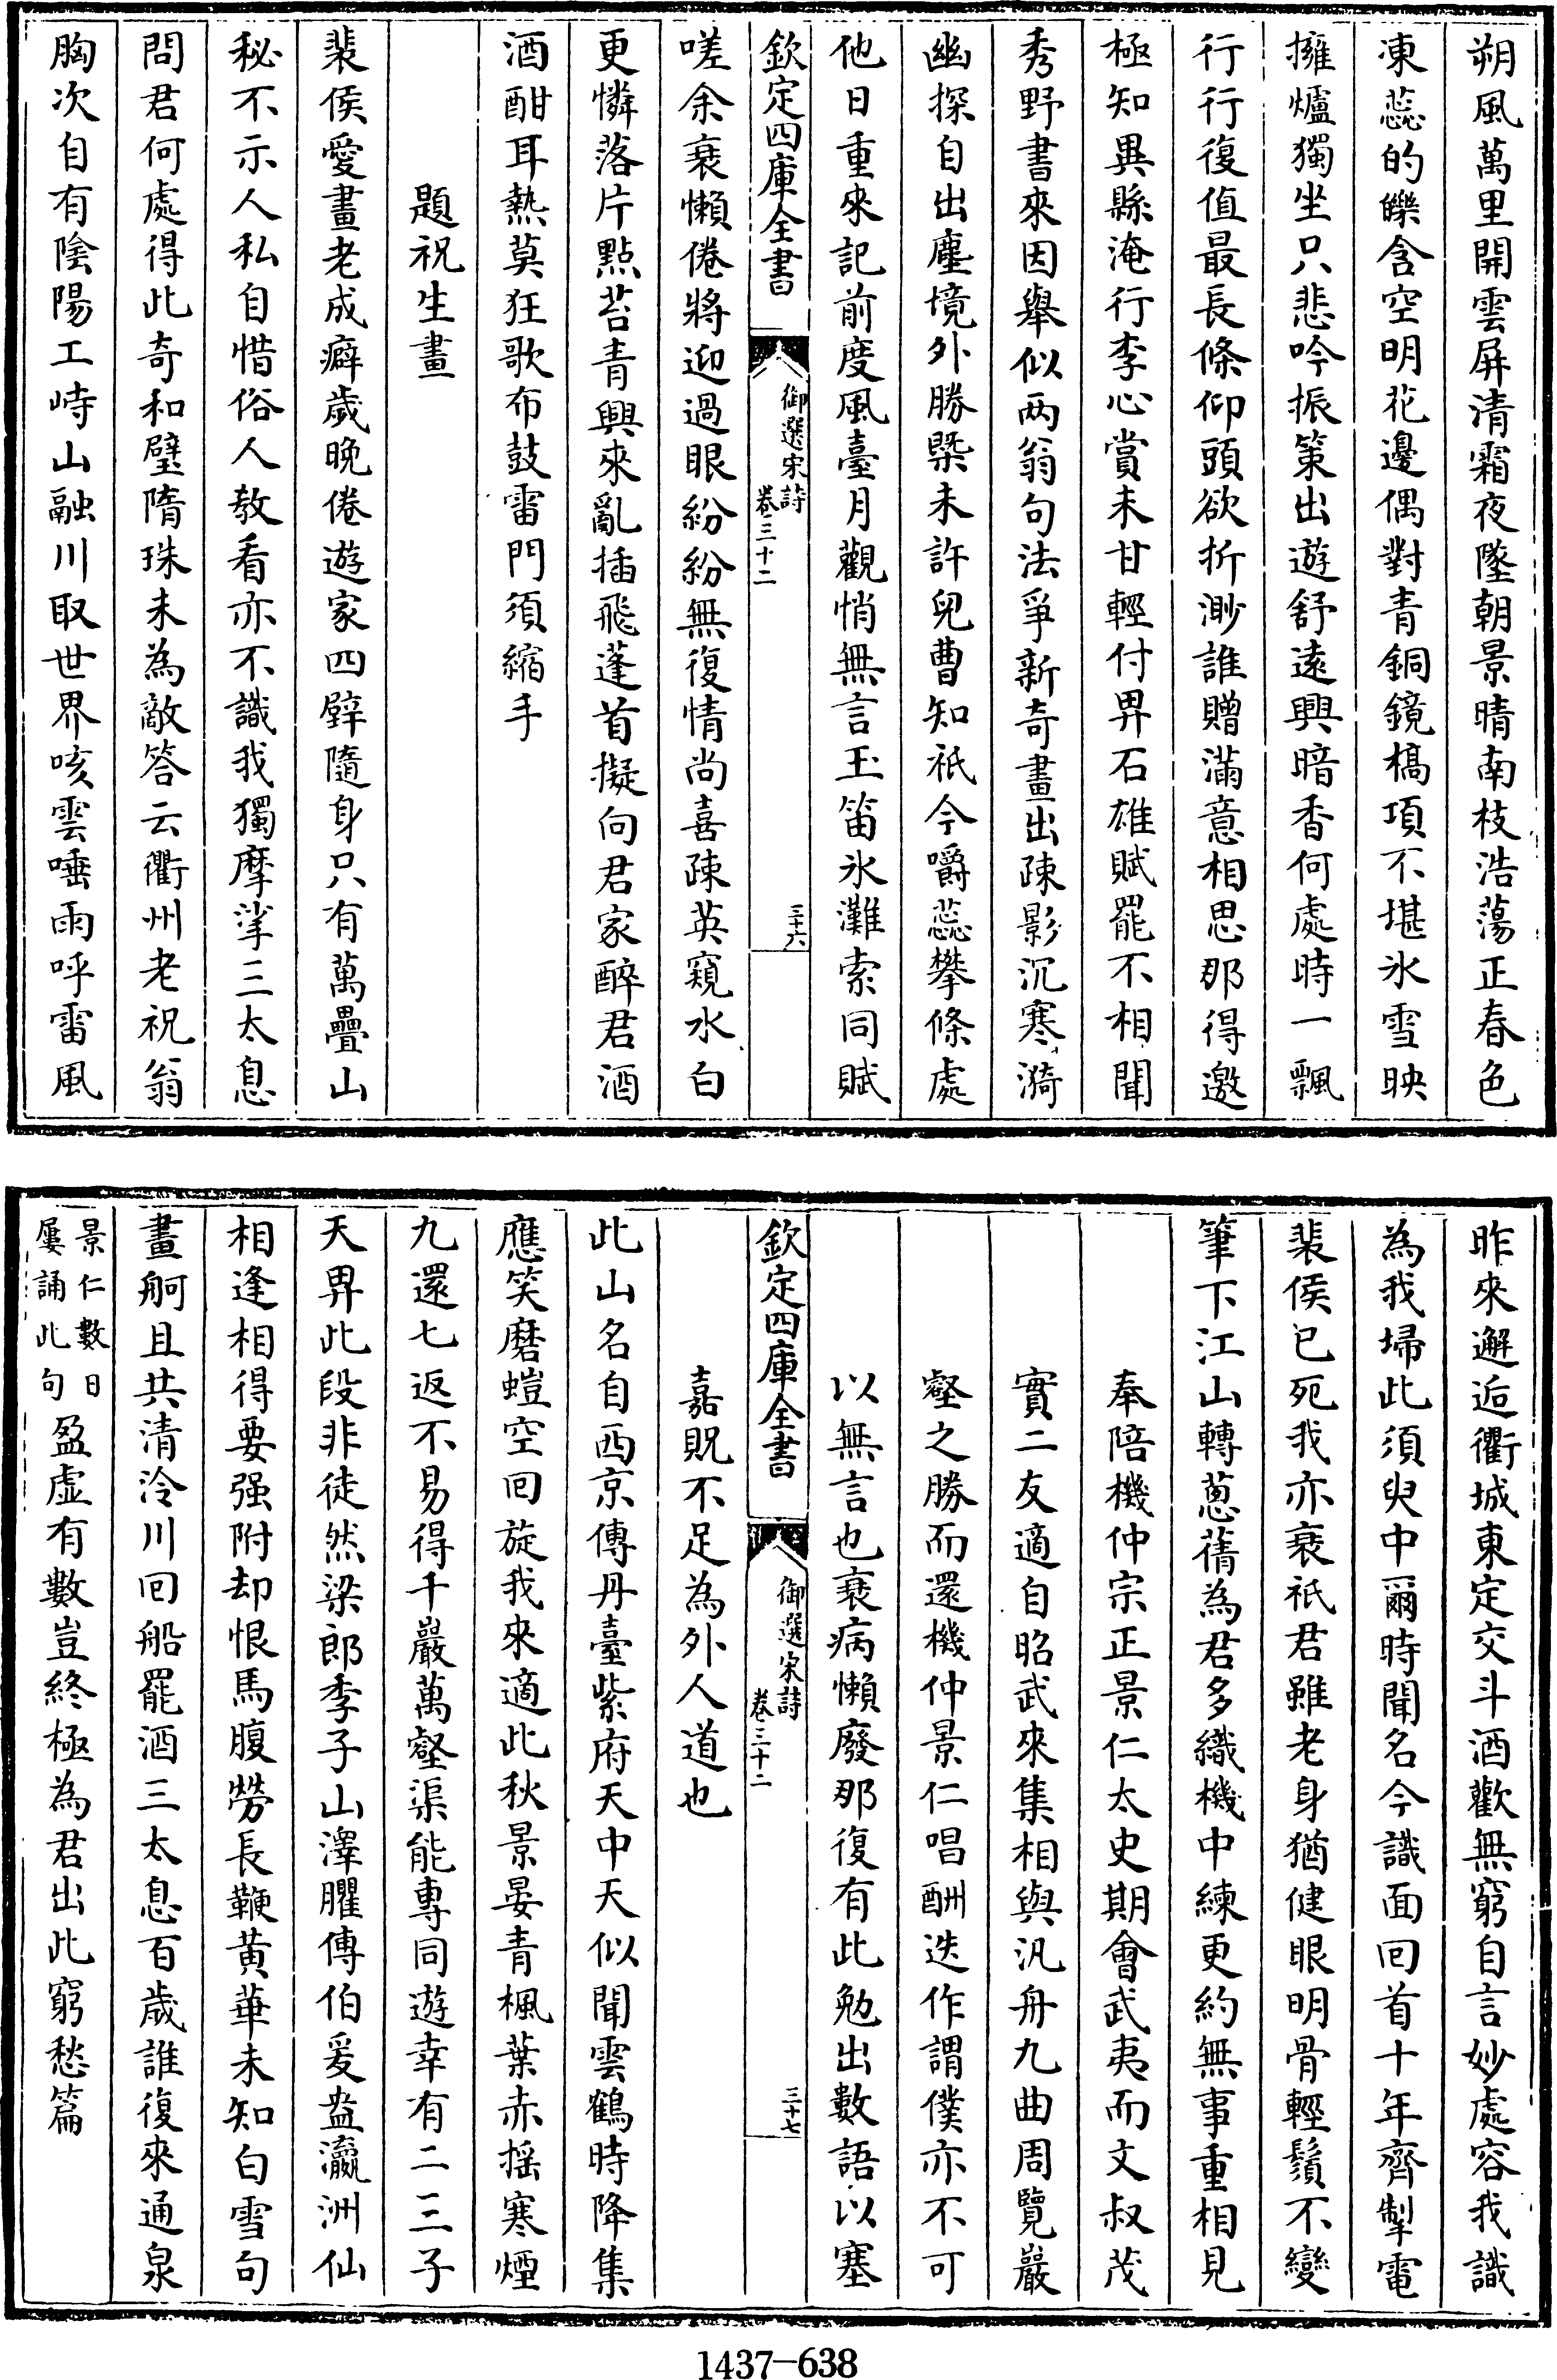 朔風萬里開雲屏清霜夜墜朝景晴南枝浩蕩正春色
凍蕊的皪含空明花邊偶對青銅鏡槁項不堪氷雪映
擁爐獨坐只悲吟振策出遊舒遠興暗香何處時一飄
行行復值最長條仰頭欲折渺誰贈滿意相思那得邀
極知異縣淹行李心賞未甘輕付畀石雄賦罷不相聞
秀野書來因舉似两翁句法爭新奇畫出疎影沉寒漪
幽探自出塵境外勝槩未許兒曹知祇今嚼蕊攀條處
他日重來記前度風臺月觀悄無言玉笛氷灘索同賦
欽定四庫全書
御選宋詩
卷三十二
三十六
嗟余衰懶倦將迎過眼紛紛無復情尚喜疎英窺水白
更憐落片點苔青興來亂插飛蓬首擬向君家醉君酒
酒酣耳熱莫狂歌布鼓雷門須縮手
題祝生畫
裴侯愛畫老成癖歲晚倦遊家四壁隨身只有萬疊山
秘不示人私自惜俗人教看亦不識我獨摩挲三太息
問君何處得此奇和璧隋珠未為敵答云衢州老祝翁
胸次自有陰陽工峙山融川取世界咳雲唾雨呼雷風
昨來邂逅衢城東定交斗酒歡無窮自言妙處容我識
為我埽此須臾中爾時聞名今識面回首十年齊掣電
裴侯已死我亦衰祇君雖老身猶健眼明骨輕鬚不變
筆下江山轉蔥蒨為君多織機中練更約無事重相見
奉陪機仲宗正景仁太史期會武夷而文叔茂
實二友適自昭武來集相與汎舟九曲周覽巖
壑之勝而還機仲景仁唱酬迭作謂僕亦不可
以無言也衰病懶廢那復有此勉出數語以塞
欽定四庫全書
御選宋詩
卷三十二
三十七
嘉貺不足為外人道也
此山名自西京傳丹臺紫府天中天似聞雲鶴時降集
應笑磨螘空回旋我來適此秋景晏青楓葉赤摇寒煙
九還七返不易得千巖萬壑渠能專同遊幸有二三子
天畀此段非徒然梁郎季子山澤臞傅伯爰盎瀛洲仙
相逢相得要强附却恨馬腹勞長鞭黃華未知白雪句
畫舸且共清泠川回船罷酒三太息百歲誰復來通泉
景仁數日屢誦此句盈虛有數豈終極為君出此窮愁篇
1437-638